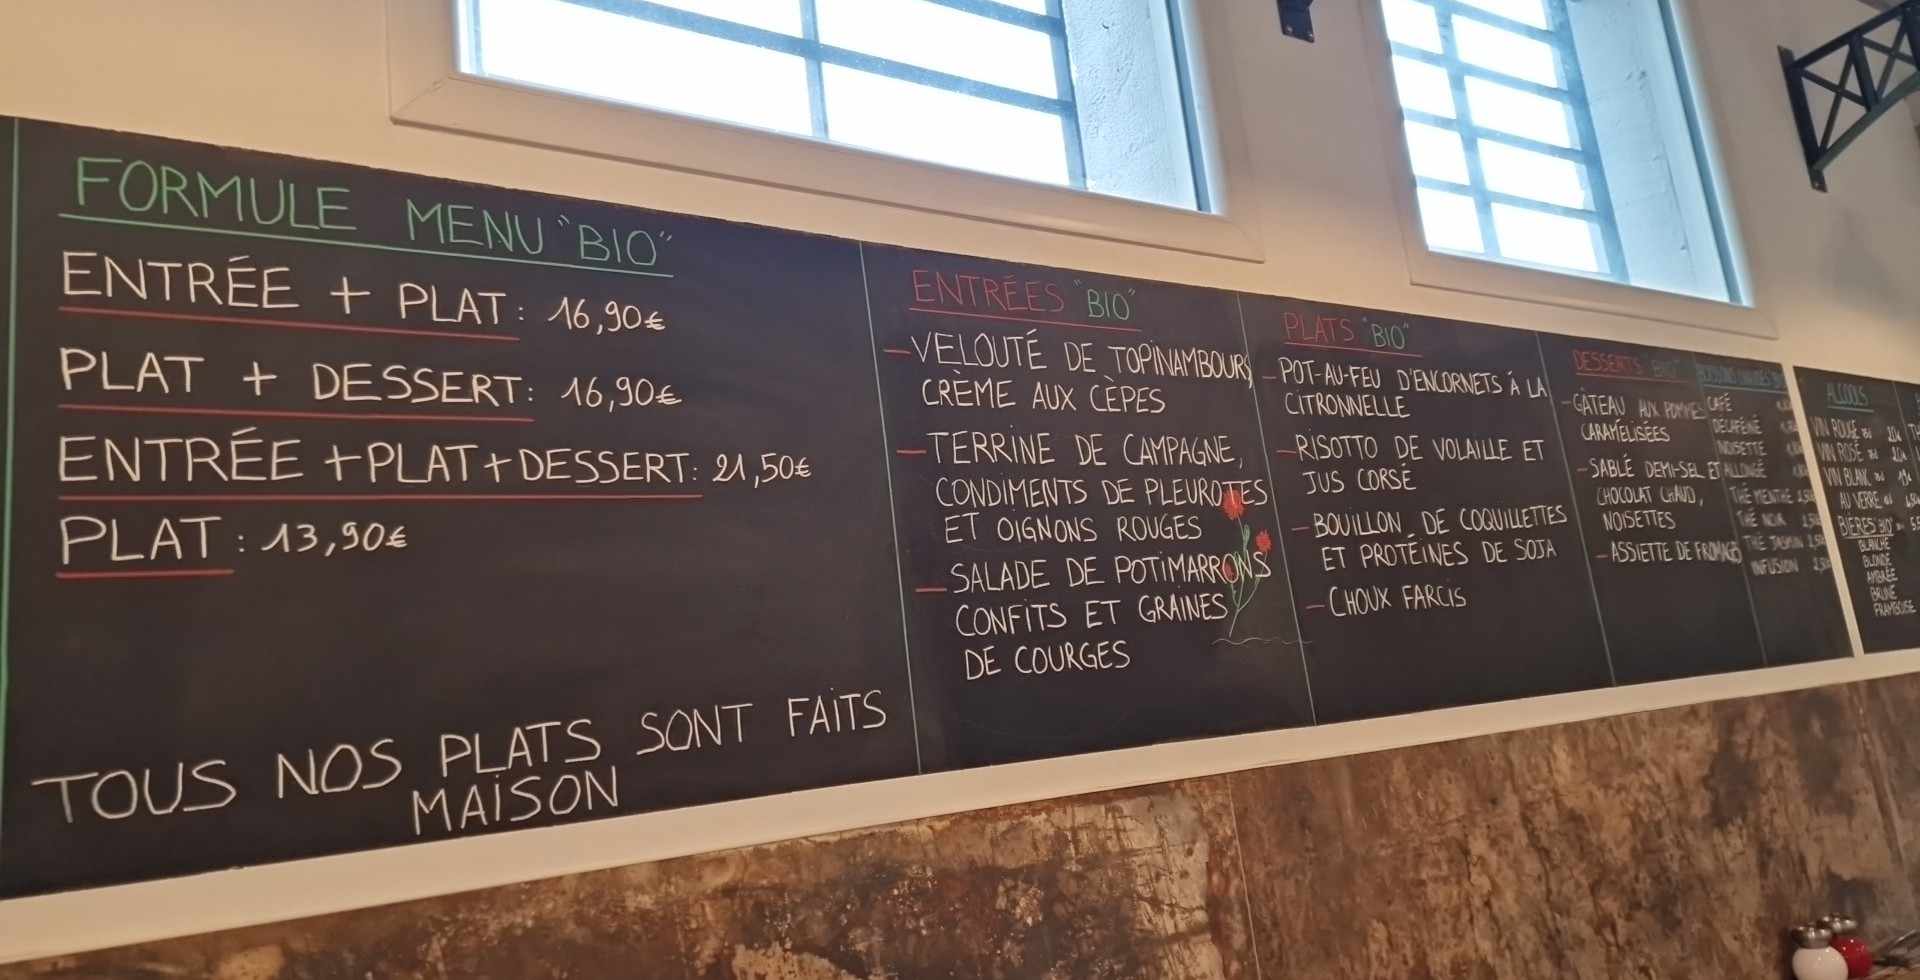 FORMULE MENU "BIO"
ENTRÉE + PLAT: 16,90€
PLAT + DESSERT: 16,90€
ENTRÉE + PLAT + DESSERT: 21,50€
PLAT: 13,90€
TOUS NOS PLATS SONT FAITS
MAISON
ENTRÉES "BIO"
- VELOUTÉ DE TOPINAMBOURS
CRÈME AUX CÈPES
- TERRINE DE CAMPAGNE,
CONDIMENTS DE PLEUROTES
ET OIGNONS ROUGES
- SALADE DE POTIMARRONS
CONFITS ET GRAINES
DE COURGES
PLATS "BIO"
- POT-AU-FEU D'ENCORNETS À LA
CITRONNELLE
- RISOTTO DE VOLAILLE ET
JUS CORSÉ
- BOUILLON DE COQUILLETTES
ET PROTÉINES DE SOJA
- CHOUX FARCIS
DESSERTS "BIO"
- GÂTEAU AUX POMMES
CARAMÉLISÉES
- SABLÉ DEMI-SEL ET
CHOCOLAT CHAUD,
NOISETTES
- ASSIETTE DE FROMAGES
BOISSONS CHAUDES
CAFÉ
DÉCAFÉINÉ
NOISETTE
ALLONGÉ
THÉ MENTHE 2,50
THÉ NOIR 2,50
THÉ JASMIN 2,50
INFUSION 2,50
ALCOOLS
VIN ROUGE
VIN ROSÉ
VIN BLANC
AU VERRE
BIÈRES BIO
BLANCHE
BLONDE
AMBRÉE
BRUNE
FRAMBOISE